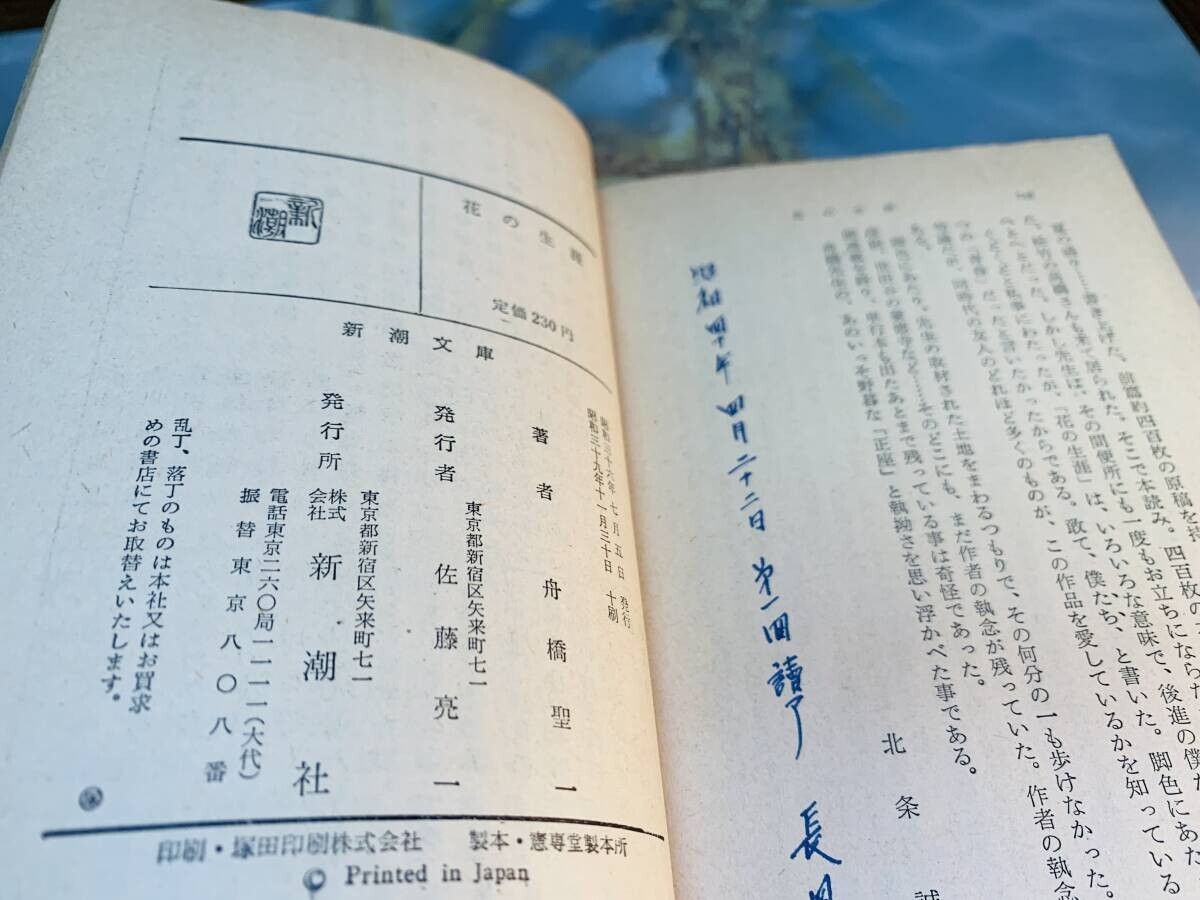 夏の盛り……書き上げた。前篇約四百枚の原稿を持
た。松竹の高橋さんも来て居られた。そこで本読み。四百枚の
べとべとだった。しかし先生は、その間便所にも一度もお立ちにならな
くどくどと私事にわたったが、「花の生涯」は、いろいろな意味で、後進の僕た
つの「青春」だったと言いたかったからである。敢て、僕たち、と書いた。脚色にあた
同時代の友人のどれほど多くのものが、この作品を愛しているかを知っている
ある。
脚色にあたり、先生の取材された土地をまわるつもりで、その何分の一も歩けなかった。
そのどこにも、まだ作者の執念が残っていた。作者の執念
単行本も出たあとまで残っている事は奇怪であった。
舟橋先生の、あのいっそ野暮な「正座」と執拗さを思い浮かべた事である。
北条誠
昭和四十年 四月二十二日 第一回讀了 長
花の生涯
定価230円
新潮
新潮文庫
昭和三十六年七月五日 発行
昭和三十九年十一月三十日 十刷
著者 舟橋聖一
発行者 佐藤亮一
東京都新宿区矢来町七一
発行所 株式会社 新潮社
東京都新宿区矢来町七一
電話東京二六〇局一一一一(大代)
振替東京八〇八番
乱丁、落丁のものは本社又はお買求
めの書店にてお取替えいたします。
印刷・塚田印刷株式会社 製本・憲専堂製本所
© Printed in Japan